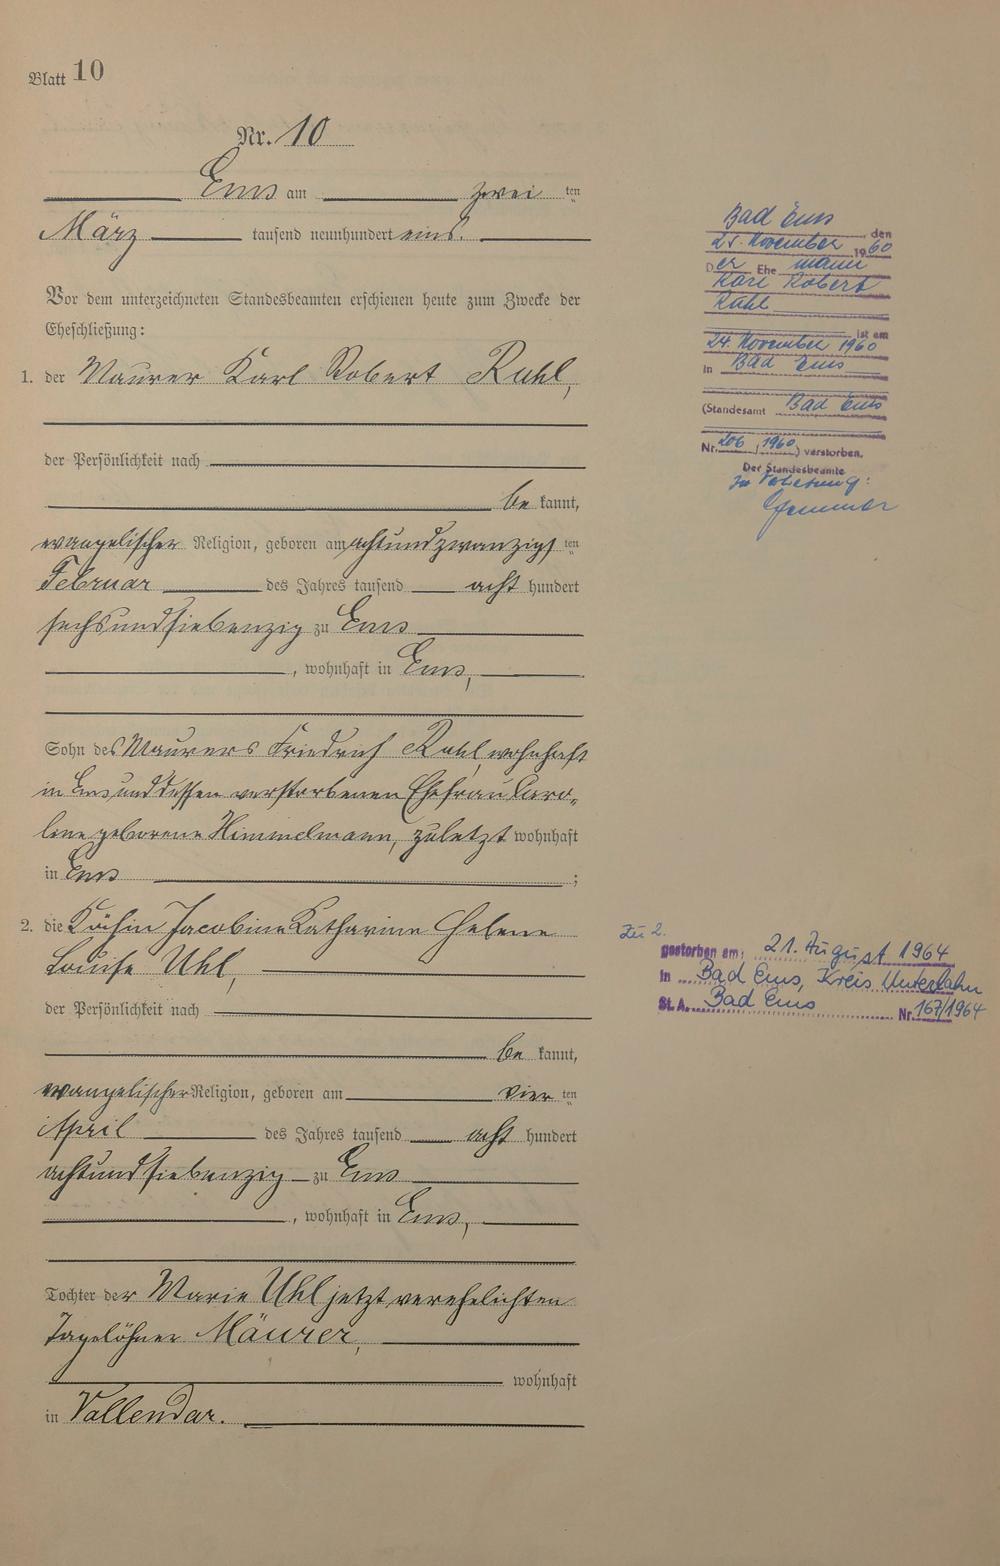 Blatt 10
Nr. 10
Ems am zwei ten
März tausend neunhundert eins.
Vor dem unterzeichneten Standesbeamten erschienen heute zum Zwecke der
Eheschließung:
1. der Maurer Karl Robert Ruhl,
der Persönlichkeit nach
be kannt,
evangelischer Religion, geboren am achtundzwanzigs ten
Februar des Jahres tausend acht hundert
sechsundsiebenzig zu Ems
, wohnhaft in Ems,
Sohn des Maurers Friedrich Ruhl, wohnhaft
in Ems und dessen verstorbenen Ehefrau Caro-
line geborene Himmelmann, zuletzt wohnhaft
in Ems ;
2. die Köchin Jacobine Katharine Helene
Louise Uhl,
der Persönlichkeit nach
be kannt,
evangelischer Religion, geboren am vier ten
April des Jahres tausend acht hundert
achtundsiebenzig zu Ems
, wohnhaft in Ems,
Tochter der Marie Uhl jetzt verehelichten
Tagelöhner Mäurer,
wohnhaft
in Vallendar.
Bad Ems, den
25. November 1960
Der Ehemann
Karl Robert
Ruhl
ist am
24. November 1960
in Bad Ems
(Standesamt Bad Ems
Nr. 206 / 1960) verstorben.
Der Standesbeamte
In Vertretung:
Zu 2.
gestorben am: 21. August 1964
in Bad Ems, Kreis Unterlahn
St. A. Bad Ems Nr. 167/1964